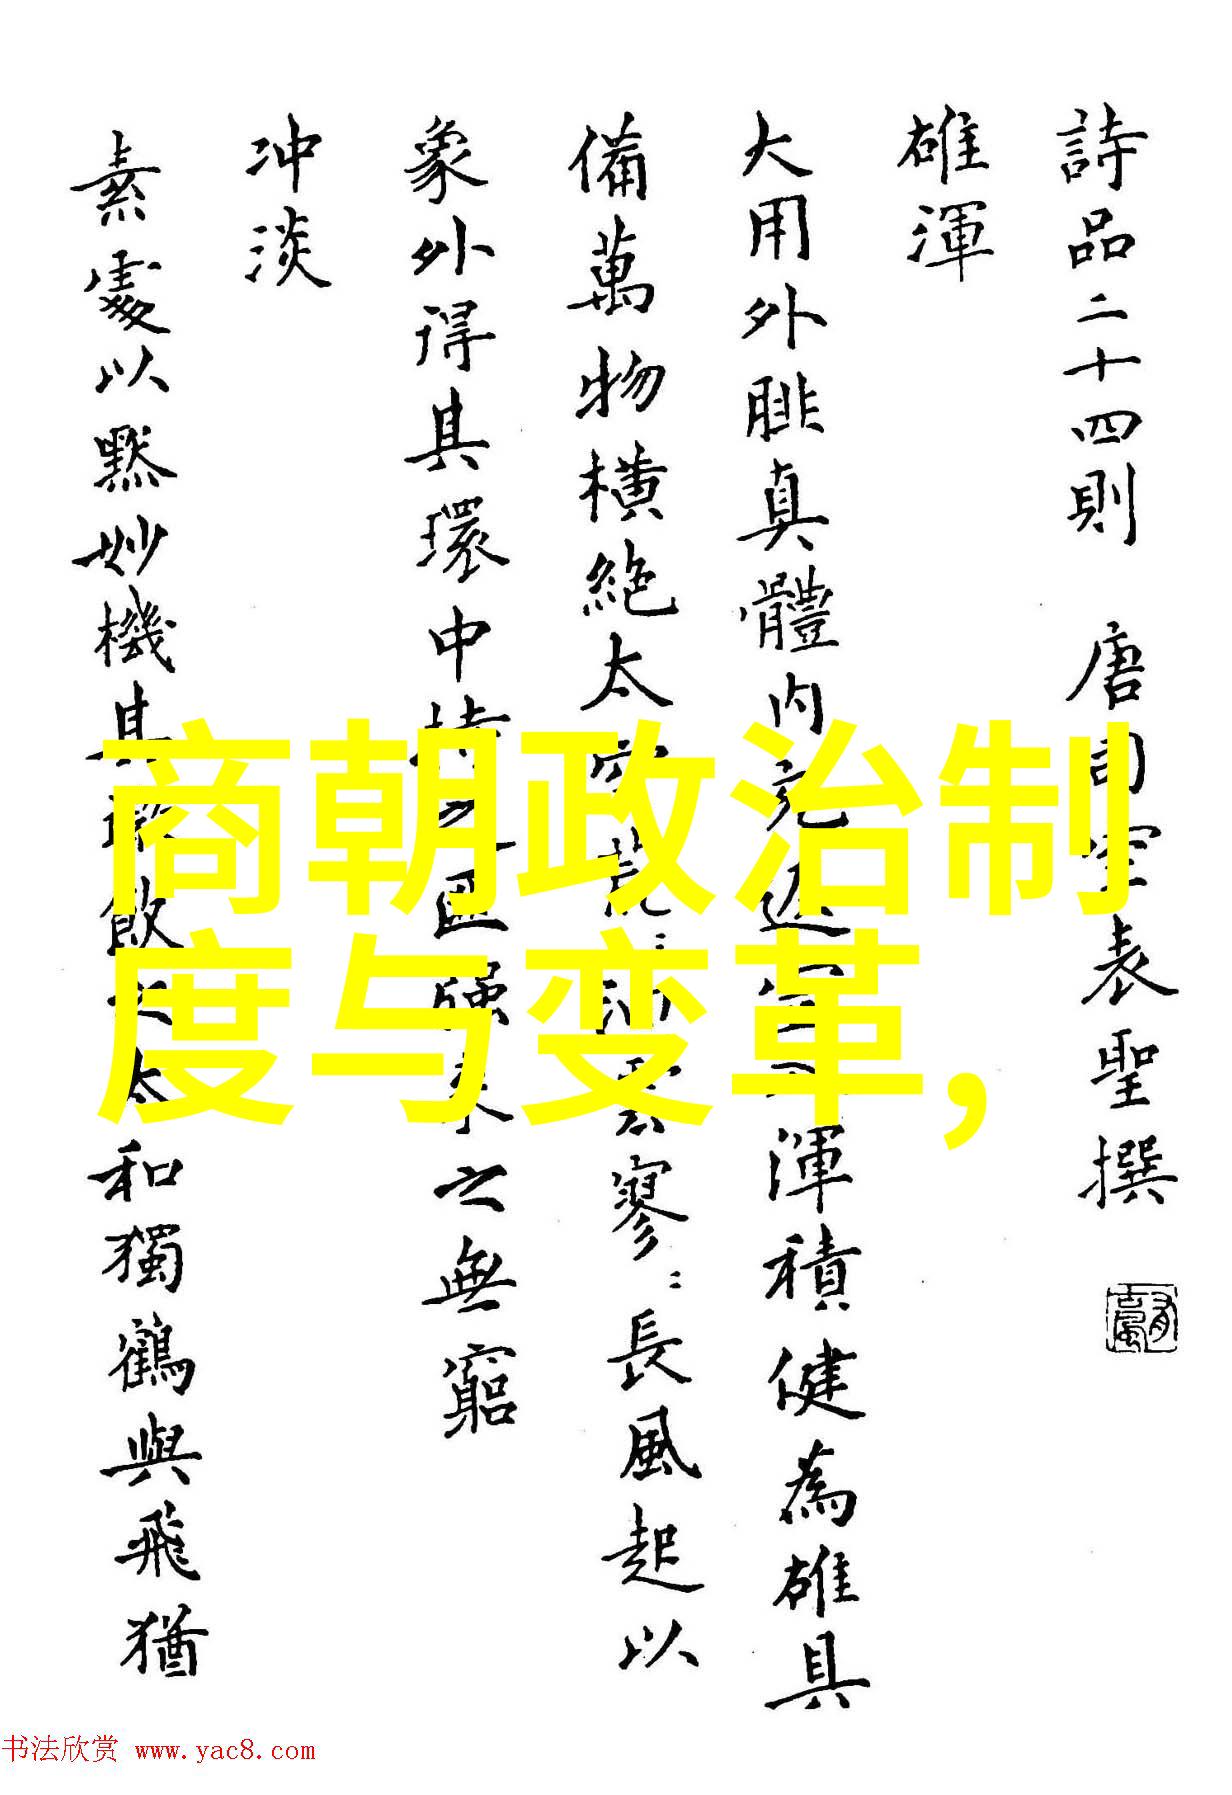 詩品二十四則 唐司空表聖撰
雄渾
大用外腓真體內充返虛入渾積健為雄具
備萬物橫絕太空荒〻油雲寥〻長風起以
象外得其環中持之匪強來之無窮
冲淡
素處以默妙機其微飲之太和獨鶴與飛猶
商朝政治制
度与变革,
书法欣赏 www.yac8.com